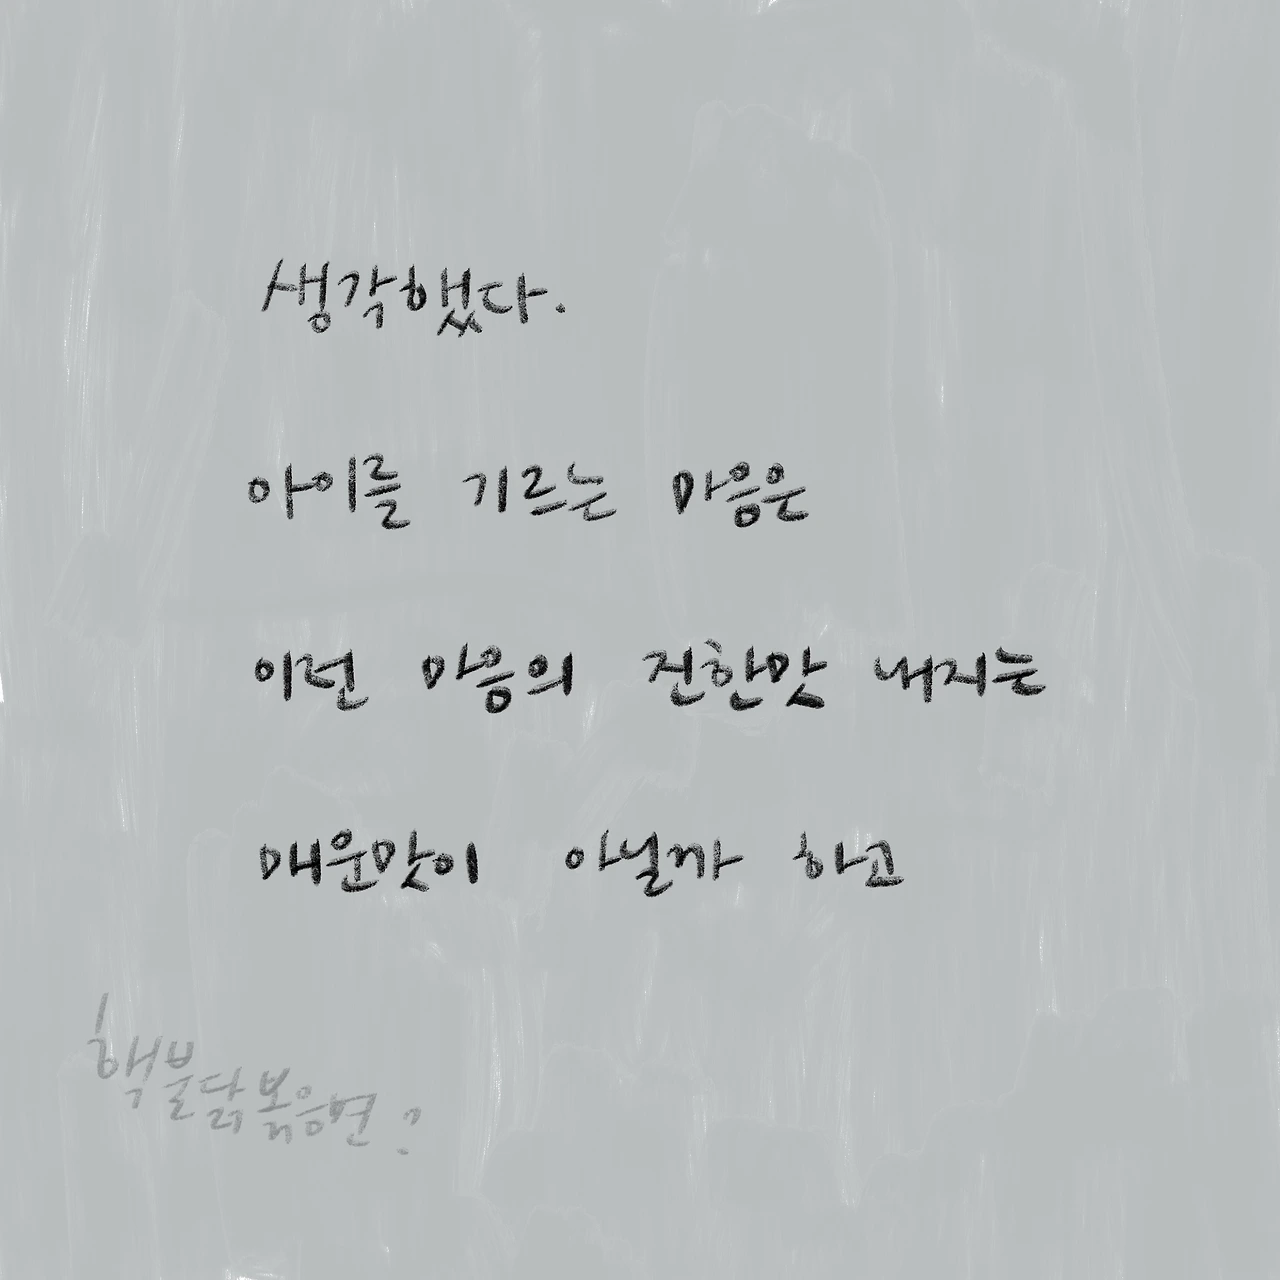 생각했다.
아이를 기르는 마음은
이런 마음의 진한맛 내지는
매운맛이 아닐까 하고
핵불닭볶음면?